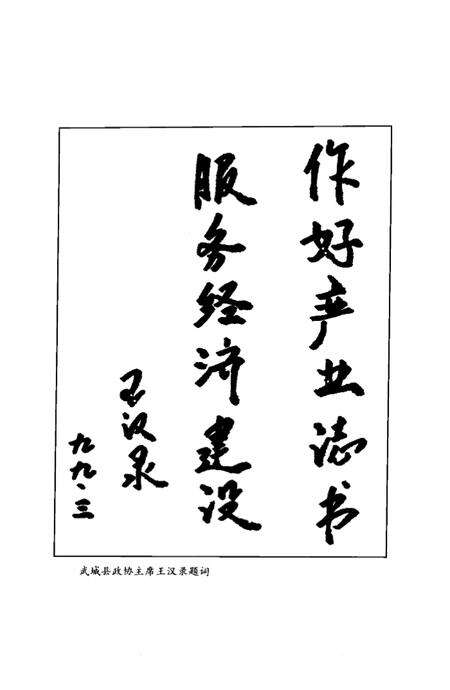 作好产业志书
服务经济建设
王汉录
九九、三
武城县政协主席王汉录题词